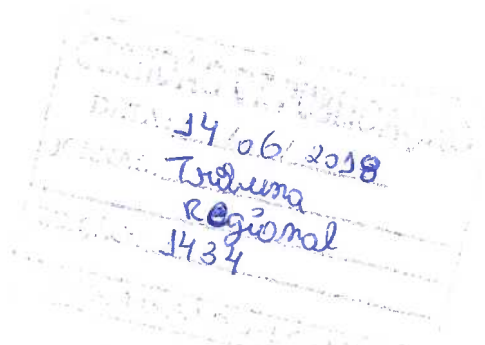 14/06/2018
Tribuna
Regional
1434